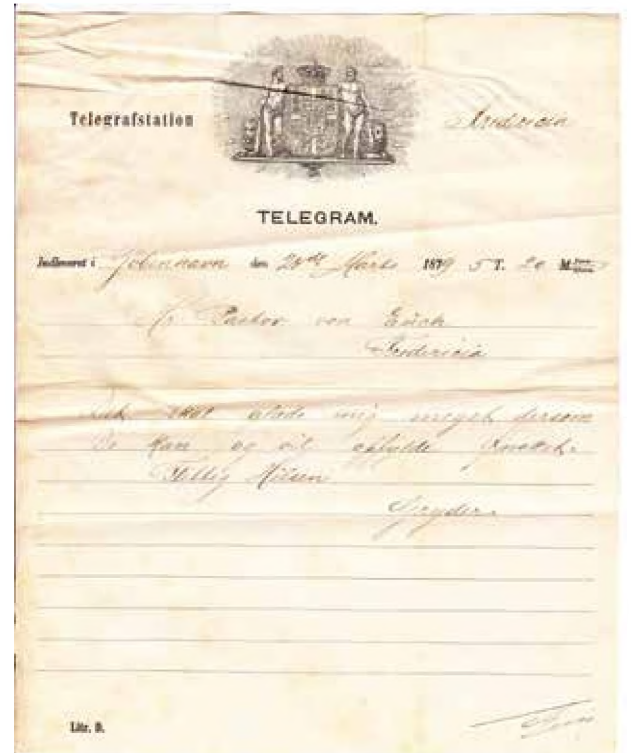 Telegrafstation Fredericia
TELEGRAM.
Indleveret i Kjøbenhavn den 20de Marts 1879 5 T. 20 M.
Hr Pastor von Euch
Fredericia
Det skal glæde mig meget dersom
De kan og vil opfylde Ønsket.
Hilsen
Litr. B.